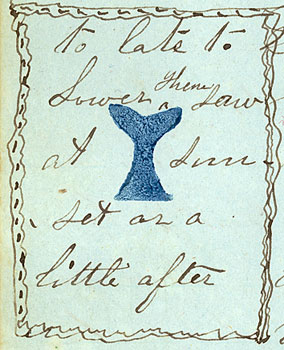 to late to
Lower ^them saw
at sun-
set or a
little after